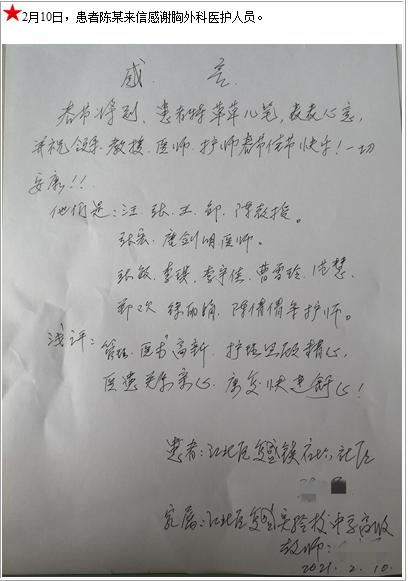 2月10日，患者陈某来信感谢胸外科医护人员。
感 言
春节将到、患者特草草几笔，表表心意，
并祝领导、教授、医师、护师春节佳节快乐！一切
安康！！
他们是：汪、张、王、邹、陈教授。
张宏、唐剑明医师。
张敏、李瑛、李宇佳、曹雪玲、洪慧、
郑欢 徐雨娟、陈倩倩等护师。
浅评：管理、医术高新、护理照顾精心，
医患关系亲心、康复快速舒心！
患者：江北区复盛镇 社区
家属：江北区复盛实验校中学高级
教师：
2021.2.10.